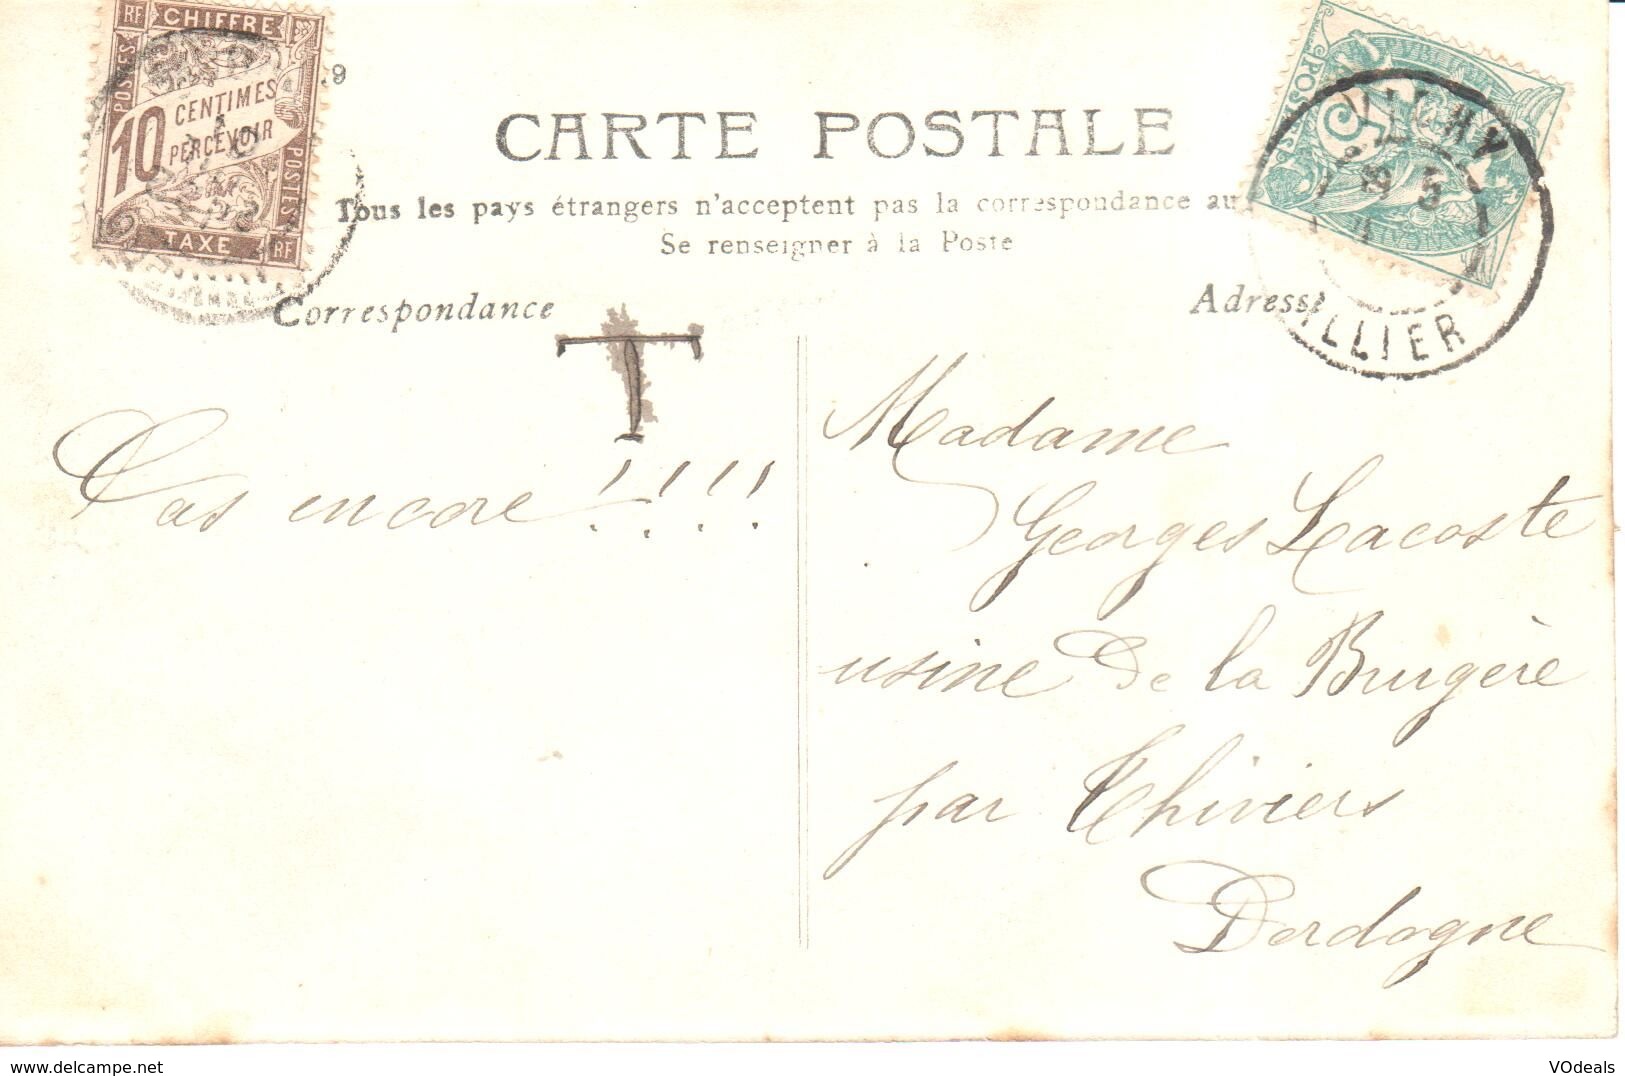 RF CHIFFRE
POSTES
10 CENTIMES
PERCEVOIR
POSTES
TAXE RF
9
CARTE POSTALE
Tous les pays étrangers n'acceptent pas la correspondance au
Se renseigner à la Poste
POSTES
5
VICHY
ALLIER
Correspondance
Adresse
T
Pas encore !!!!
Madame
Georges Lacoste
usine de la Brugère
par Thiviers
Dordogne
www.delcampe.net
VOdeals